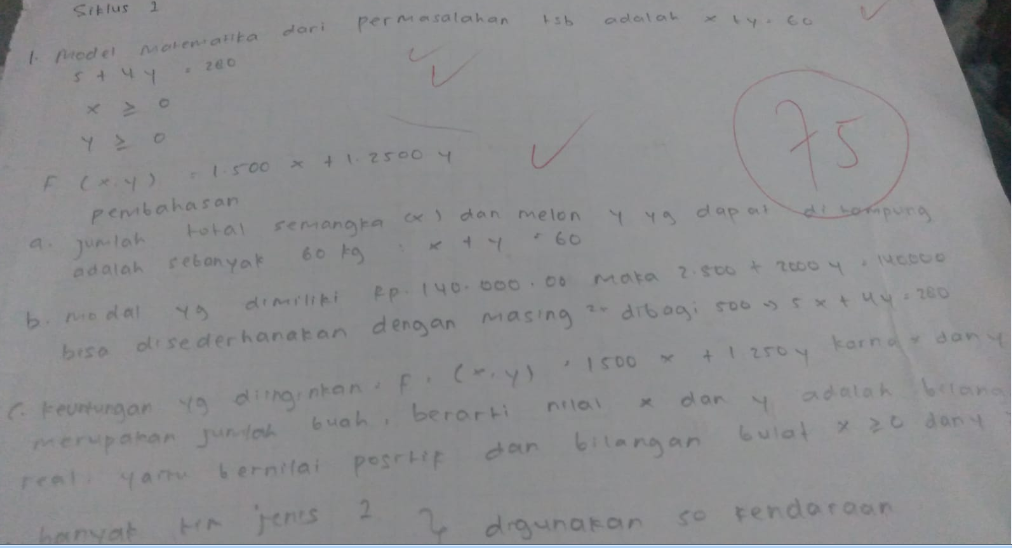 Siklus 1
1. Model Matematika dari permasalahan tsb adalah x + y = 60
5 + 4y = 280
x ≥ 0
y ≥ 0
F (x.y) = 1.500 x + 1.2500 y
75
pembahasan
a. jumlah total semangka (x) dan melon y yg dapat di tampung
adalah sebanyak 60 kg = x + y = 60
b. modal yg dimiliki Rp. 140.000.00 maka 2.500 + 2000 y = 140000
bisa disederhanakan dengan masing 2= dibagi 500 → 5x + 4y = 280
C. keuntungan yg diinginkan, F. (x.y) = 1500 x + 1250y karna x dan y
merupakan jumlah buah, berarti nilai x dan y adalah bilang
real. yaitu bernilai positif dan bilangan bulat x ≥ 0 dan y
banyak jenis 2 digunakan 50 kendaraan